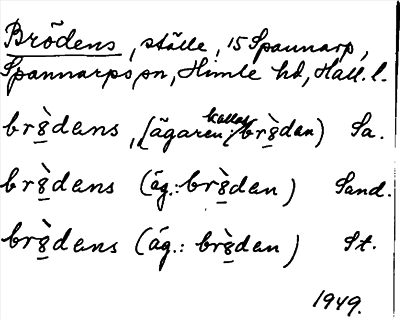 Brödens, ställe, 15 Spannarp,
Spannarps sn, Himle hd, Hall. l.
br8̲̀dens, (ägaren kallas: br8̲̀dan) Sa.
br8̲̀dens (äg.: br8̲̀dan) Sand.
br8̲̀dens (äg.: br8̲̀dan) St.
1949.